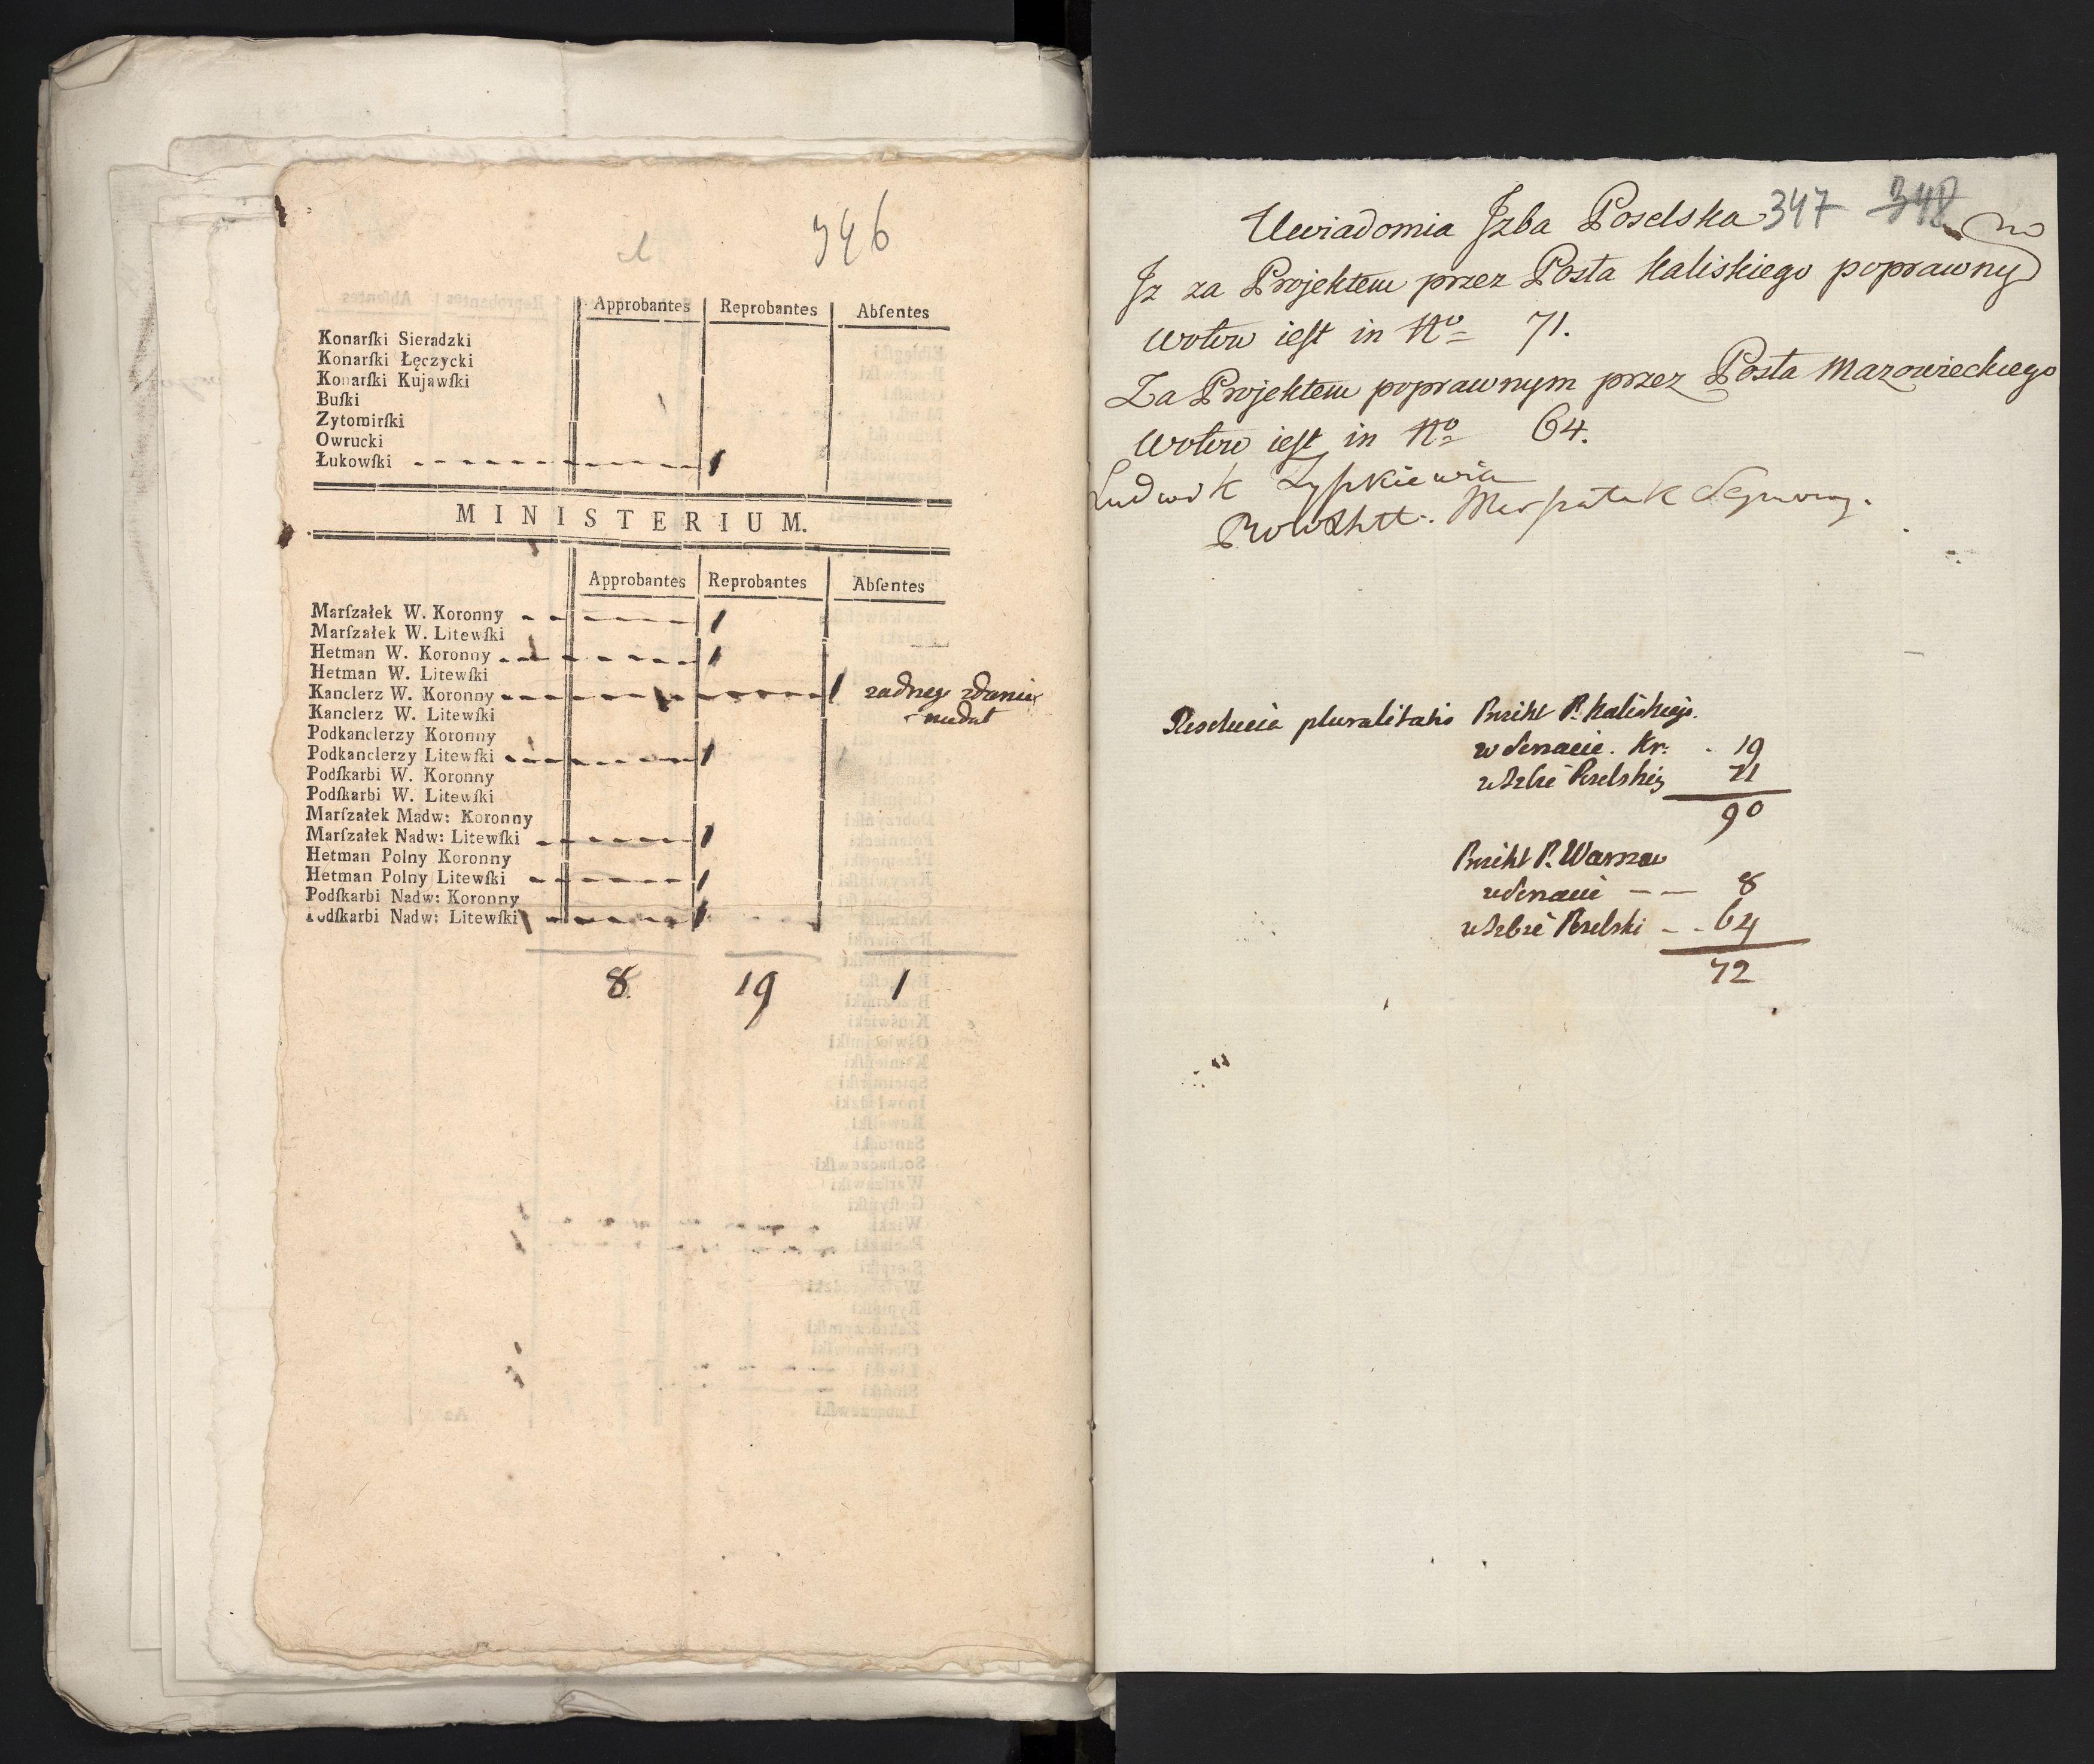 346
Approbantes Reprobantes Abſentes
Konarſki Sieradzki
Konarſki Łęczycki
Konarſki Kujawſki
Buſki
Zytomirſki
Owrucki
Łukowſki
MINISTERIUM.
Approbantes Reprobantes Abſentes
Marſzałek W. Koronny
Marſzałek W. Litewſki
Hetman W. Koronny
Hetman W. Litewſki
Kanclerz W. Koronny żadnego zdania
niedał
Kanclerz W. Litewſki
Podkanclerzy Koronny
Podkanclerzy Litewſki
Podſkarbi W. Koronny
Podſkarbi W. Litewſki
Marſzałek Madw: Koronny
Marſzałek Nadw: Litewſki
Hetman Polny Koronny
Hetman Polny Litewſki
Podſkarbi Nadw: Koronny
Podſkarbi Nadw: Litewſki
8. 19 1
347 348
Uwiadomia Jzba Poselska
Jz za Projektem przez Posła Kaliskiego poprawny
wotów ieſt in No 71.
Za Projektem poprawnym przez Posła Mazowieckiego
wotów ieſt in No 64.
Ludwik
pluralitatis P. Kaliskiego.
w Senacie. Kr: 19
w Izbie Poselskiej 71
90
P. Warszaw
w Senacie 8
w Izbie Poselski 64
72